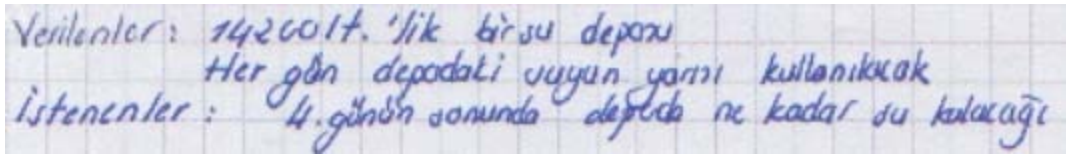 Verilenler: 14200lt.'lik bir su deposu
Her gün depodaki suyun yarısı kullanılacak
İstenenler: 4.günün sonunda depoda ne kadar su kalacağı